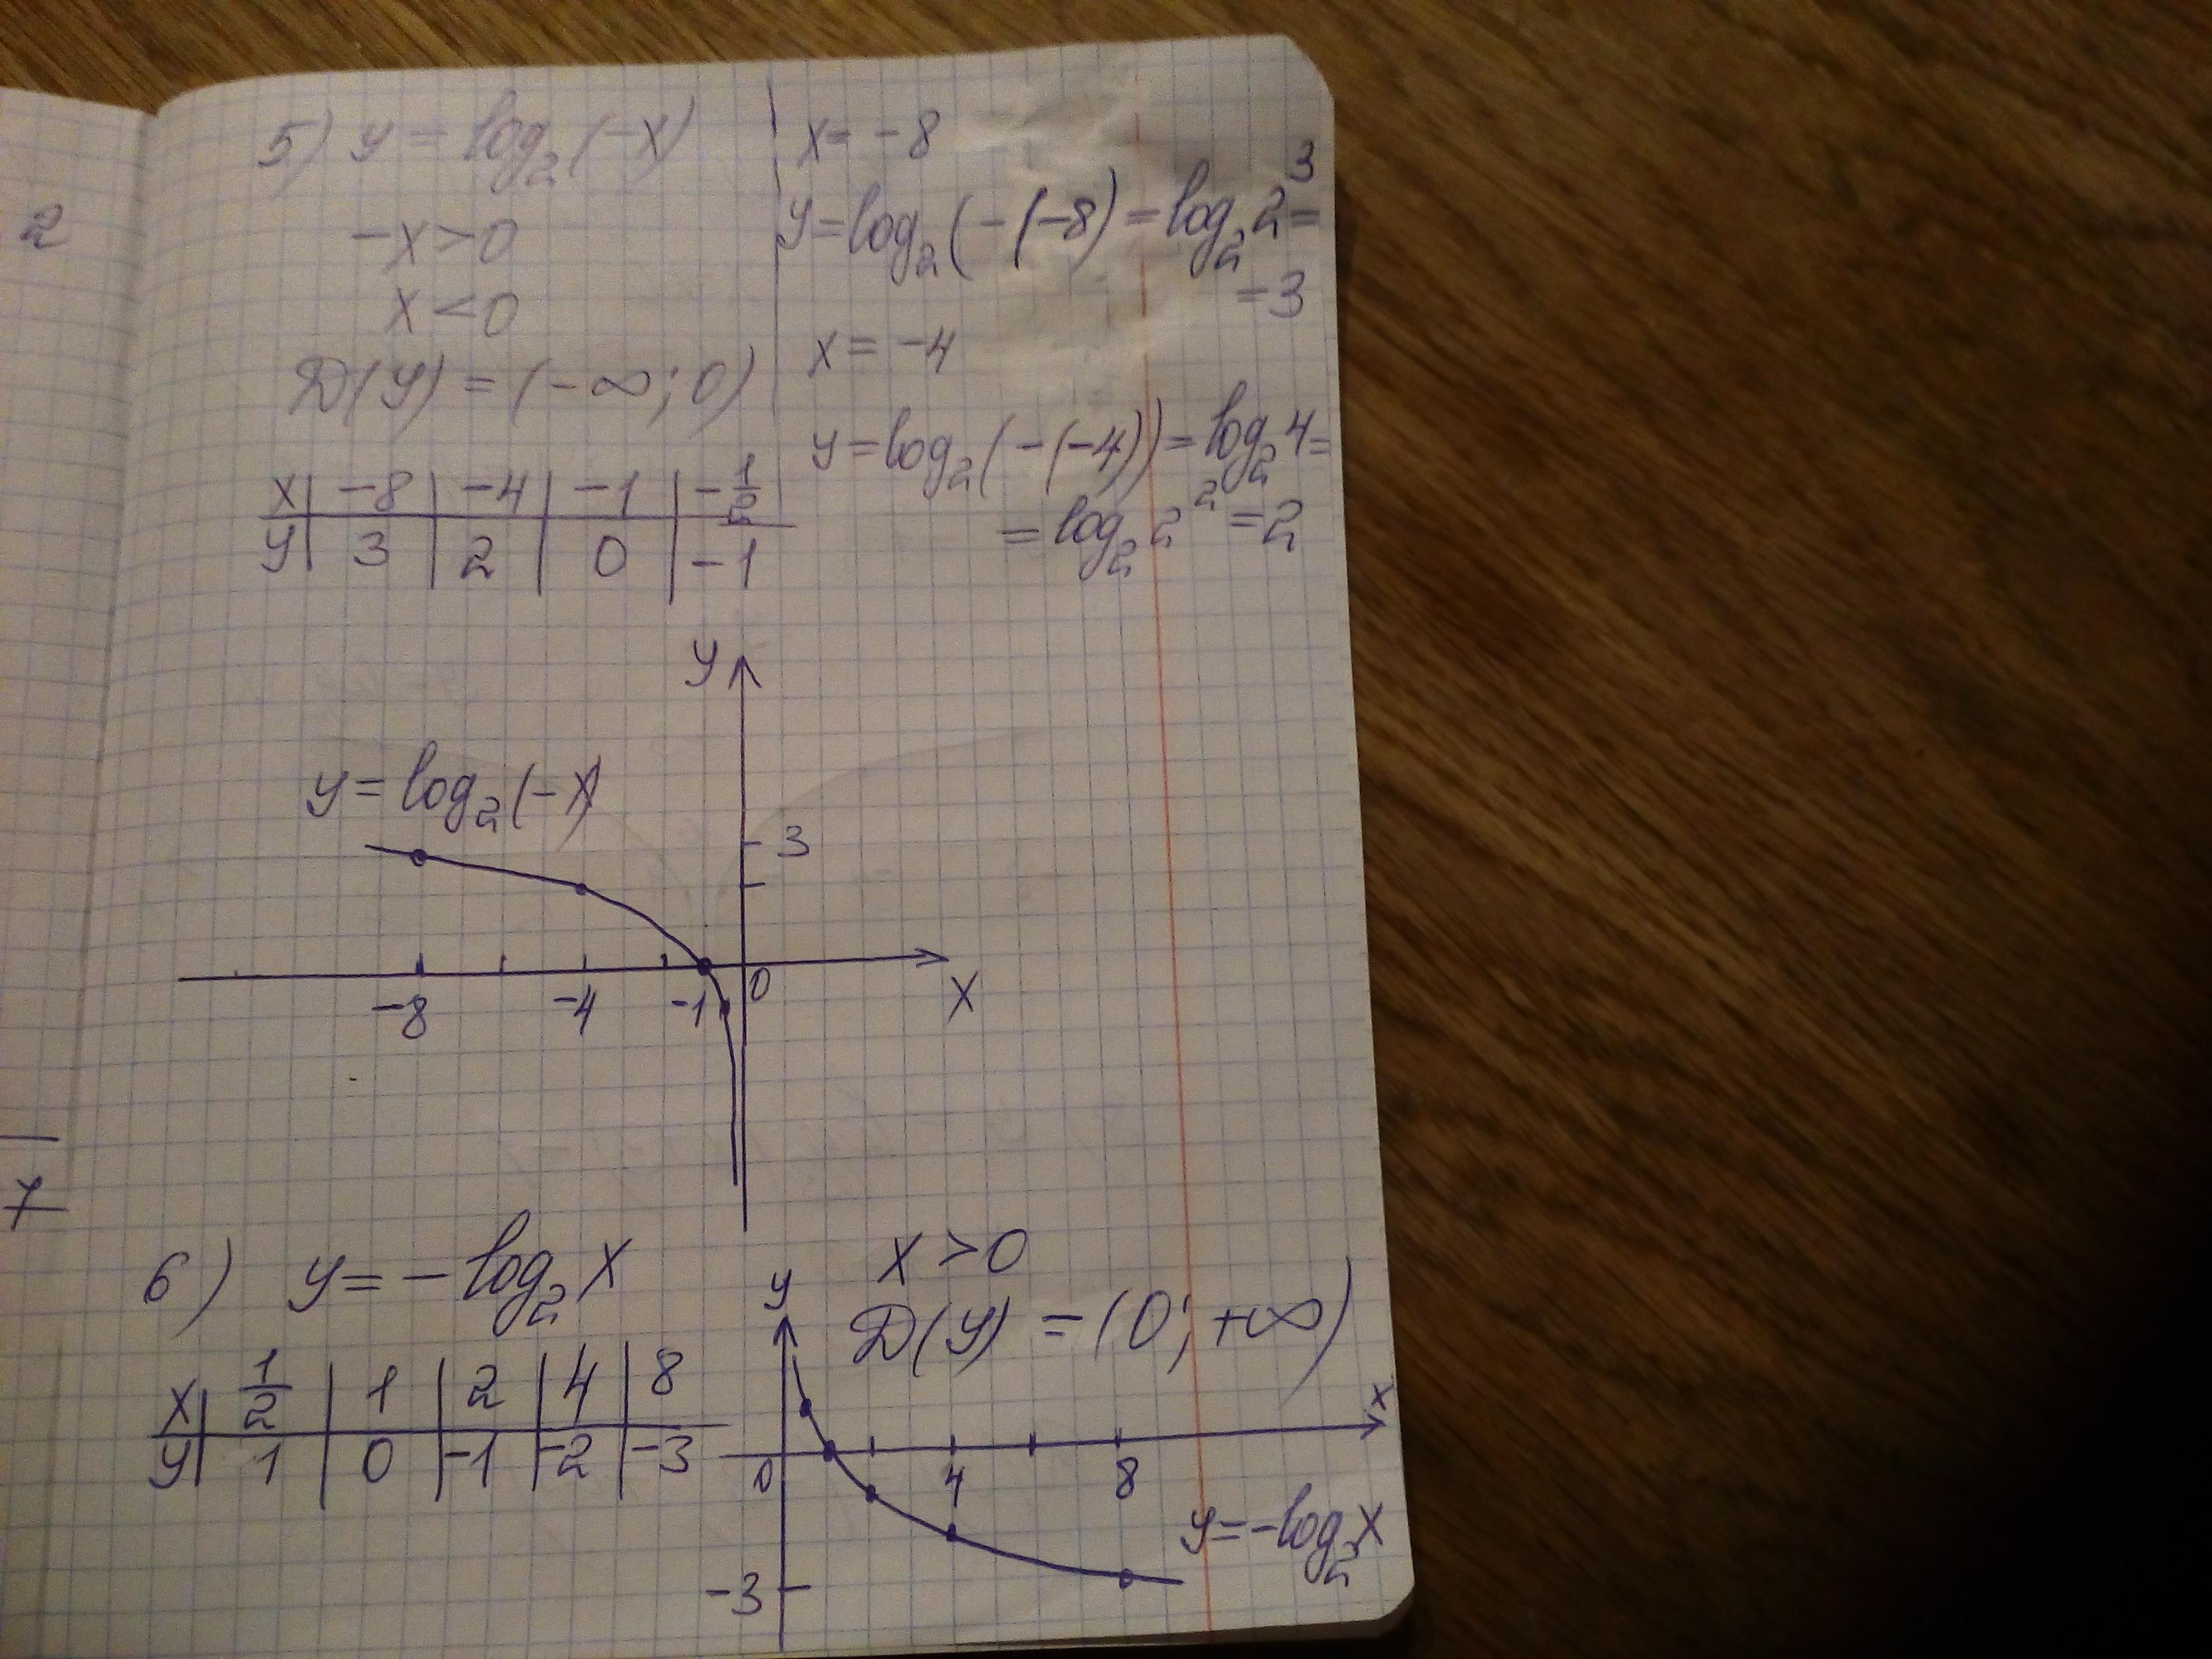 2
7
5) y = log₂(-x)
-x>0
x<0
D(y) = (-∞; 0)
x | -8 | -4 | -1 | -1/2
y | 3 | 2 | 0 | -1
x= -8
y=log₂(-(-8)=log₂2³=
=3
x= -4
y=log₂(-(-4))=log₂4=
=log₂2²=2
y
y= log₂(-x)
3
-8 -4 -1 0 x
6) y=-log₂x
x>0
D(y) =(0; +∞)
x | 1/2 | 1 | 2 | 4 | 8
y | 1 | 0 | -1 | -2 | -3
y
x
0 4 8
y=-log₂x
-3